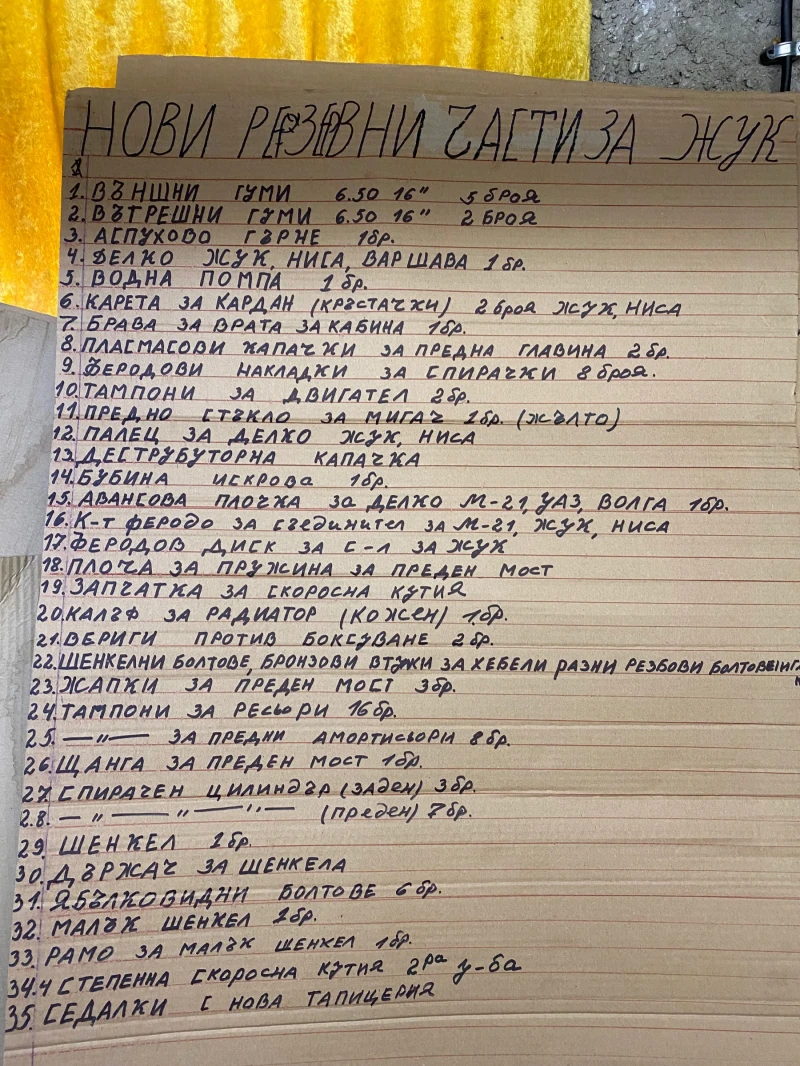 НОВИ РЕЗЕВНИ ЧАСТИ ЗА ЖУК
1. ВЪНШНИ ГУМИ 6.50 16" 5 БРОЯ
2. ВЪТРЕШНИ ГУМИ 6.50 16" 2 БРОЯ
3. АСПУХОВО ГЪРНЕ 1бр.
4. ДЕЛКО ЖУК, НИСА, ВАРШАВА 1 бр.
5. ВОДНА ПОМПА 1 бр.
6. КАРЕТА ЗА КАРДАН (КРЪСТАЧКИ) 2 броя ЖУК, НИСА
7. БРАВА ЗА ВРАТА ЗА КАБИНА 1бр.
8. ПЛАСМАСОВИ КАПАЧКИ ЗА ПРЕДНА ГЛАВИНА 2 бр.
9. ФЕРОДОВИ НАКЛАДКИ ЗА СПИРАЧКИ 8 броя.
10. ТАМПОНИ ЗА ДВИГАТЕЛ 2бр.
11. ПРЕДНО СТЪКЛО ЗА МИГАЧ 1бр. (ЖЪЛТО)
12. ПАЛЕЦ ЗА ДЕЛКО ЖУК, НИСА
13. ДЕСТРУБУТОРНА КАПАЧКА
14. БУБИНА ИСКРОВА 1бр.
15. АВАНСОВА ПЛОЧКА ЗА ДЕЛКО М-21, УАЗ, ВОЛГА 1бр.
16. К-т феродо за съединител за М-21, ЖУК, НИСА
17. ФЕРОДОВ ДИСК ЗА С-Л ЗА ЖУК
18. ПЛОЧА ЗА ПРУЖИНА ЗА ПРЕДЕН МОСТ
19. ЗАПЧАТКА ЗА СКОРОСНА КУТИЯ
20. КАЛЪФ ЗА РАДИАТОР (КОЖЕН) 1бр.
21. ВЕРИГИ ПРОТИВ БОКСУВАНЕ 2бр.
22. ШЕНКЕЛНИ БОЛТОВЕ, БРОНЗОВИ ВТУЖКИ ЗА ХЕБЕЛИ РАЗНИ РЕЗБОВИ БОЛТОВЕ
23. ЖАПКИ ЗА ПРЕДЕН МОСТ 3бр.
24. ТАМПОНИ ЗА РЕСЬОРИ 16 бр.
25. —"— ЗА ПРЕДНИ АМОРТИСЬОРИ 8 бр.
26. ЩАНГА ЗА ПРЕДЕН МОСТ 1бр.
27. СПИРАЧЕН ЦИЛИНДЪР (ЗАДЕН) 3бр.
28. —"— —"— —"— (преден) 7бр.
29. ШЕНКЕЛ 1бр.
30. ДЪРЖАЧ ЗА ШЕНКЕЛА
31. ЯБЪЛКОВИДНИ БОЛТОВЕ 6 бр.
32. МАЛЪК ШЕНКЕЛ 1бр.
33. РАМО ЗА МАЛЪК ШЕНКЕЛ 1бр.
34. 4 СТЕПЕННА СКОРОСНА КУТИЯ 2ра у-ба
35. СЕДАЛКИ С НОВА ТАПИЦЕРИЯ